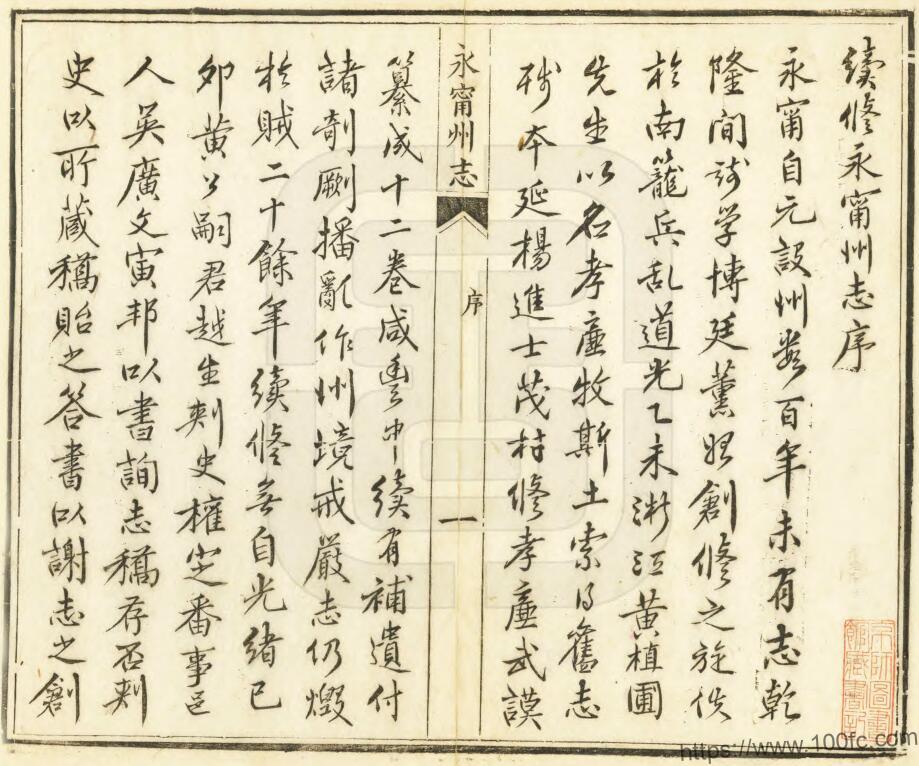 續修永甯州志序
永甯自元設州数百年未有志乾
隆間沙学博廷薰始創修之旋佚
於南籠兵乱道光乙未浙江黄植圃
先生以名孝廉牧斯土索得舊志
残本延楊進士茂材修孝廉武謨
永甯州志
序
一
纂成十二卷咸豐中續有補遺付
諸剞劂播亂作州境戒嚴志仍燬
於賊二十餘年續修無自光緒已
夘黄公嗣君越生刺史權定番事邑
人吳廣文寅邦以書詢志稿存否刺
史以所蔵稿貽之答書以謝志之創
https://www.100fc.com